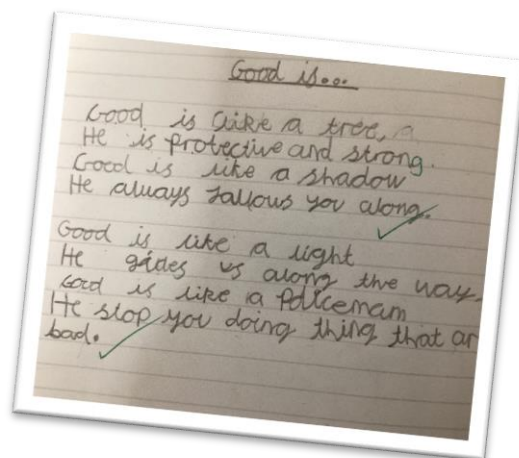 Good is...
Good is like a tree, a
He is protective and strong.
Good is like a shadow
He always fallows you along.
Good is like a light
He gides us along the way.
Good is like a Policemam
He stop you doing thing that ar
bad.